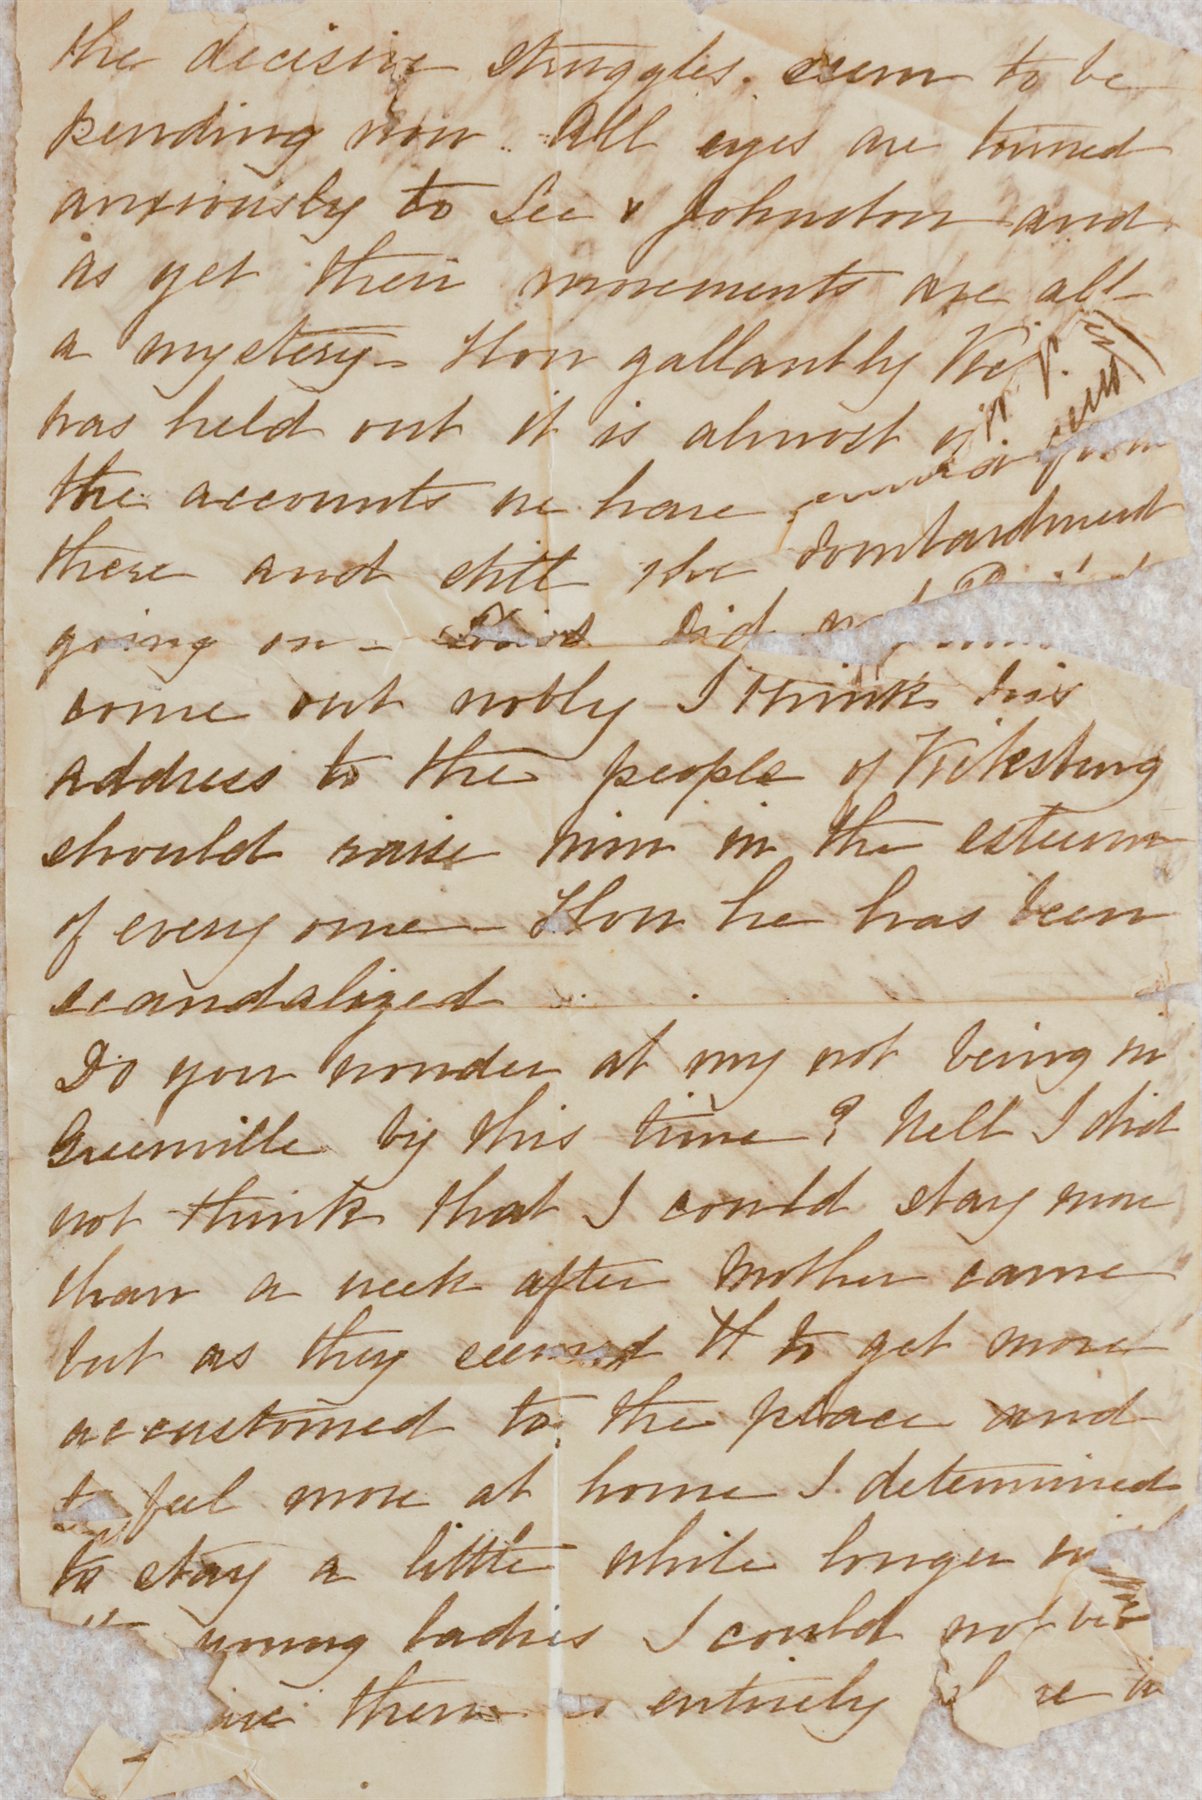 the decisive struggles seem to be
pending now. All eyes are turned
anxiously to Lee & Johnston and
as yet their movements are all
a mystery – How gallantly
has held out it is almost
the accounts we have from
there and still the bombardment
going on – did
come out nobly I think his
address to the people of Vicksburg
should raise him in the esteem
of every one – How he has been
scandalized
Do you wonder at my not being in
Greenville by this time? Well I did
not think that I could stay more
than a week after Mother came
but as they seemed to get more
accustomed to the place and
to feel more at home I determined
to stay a little while longer
young ladies I could not
them entirely